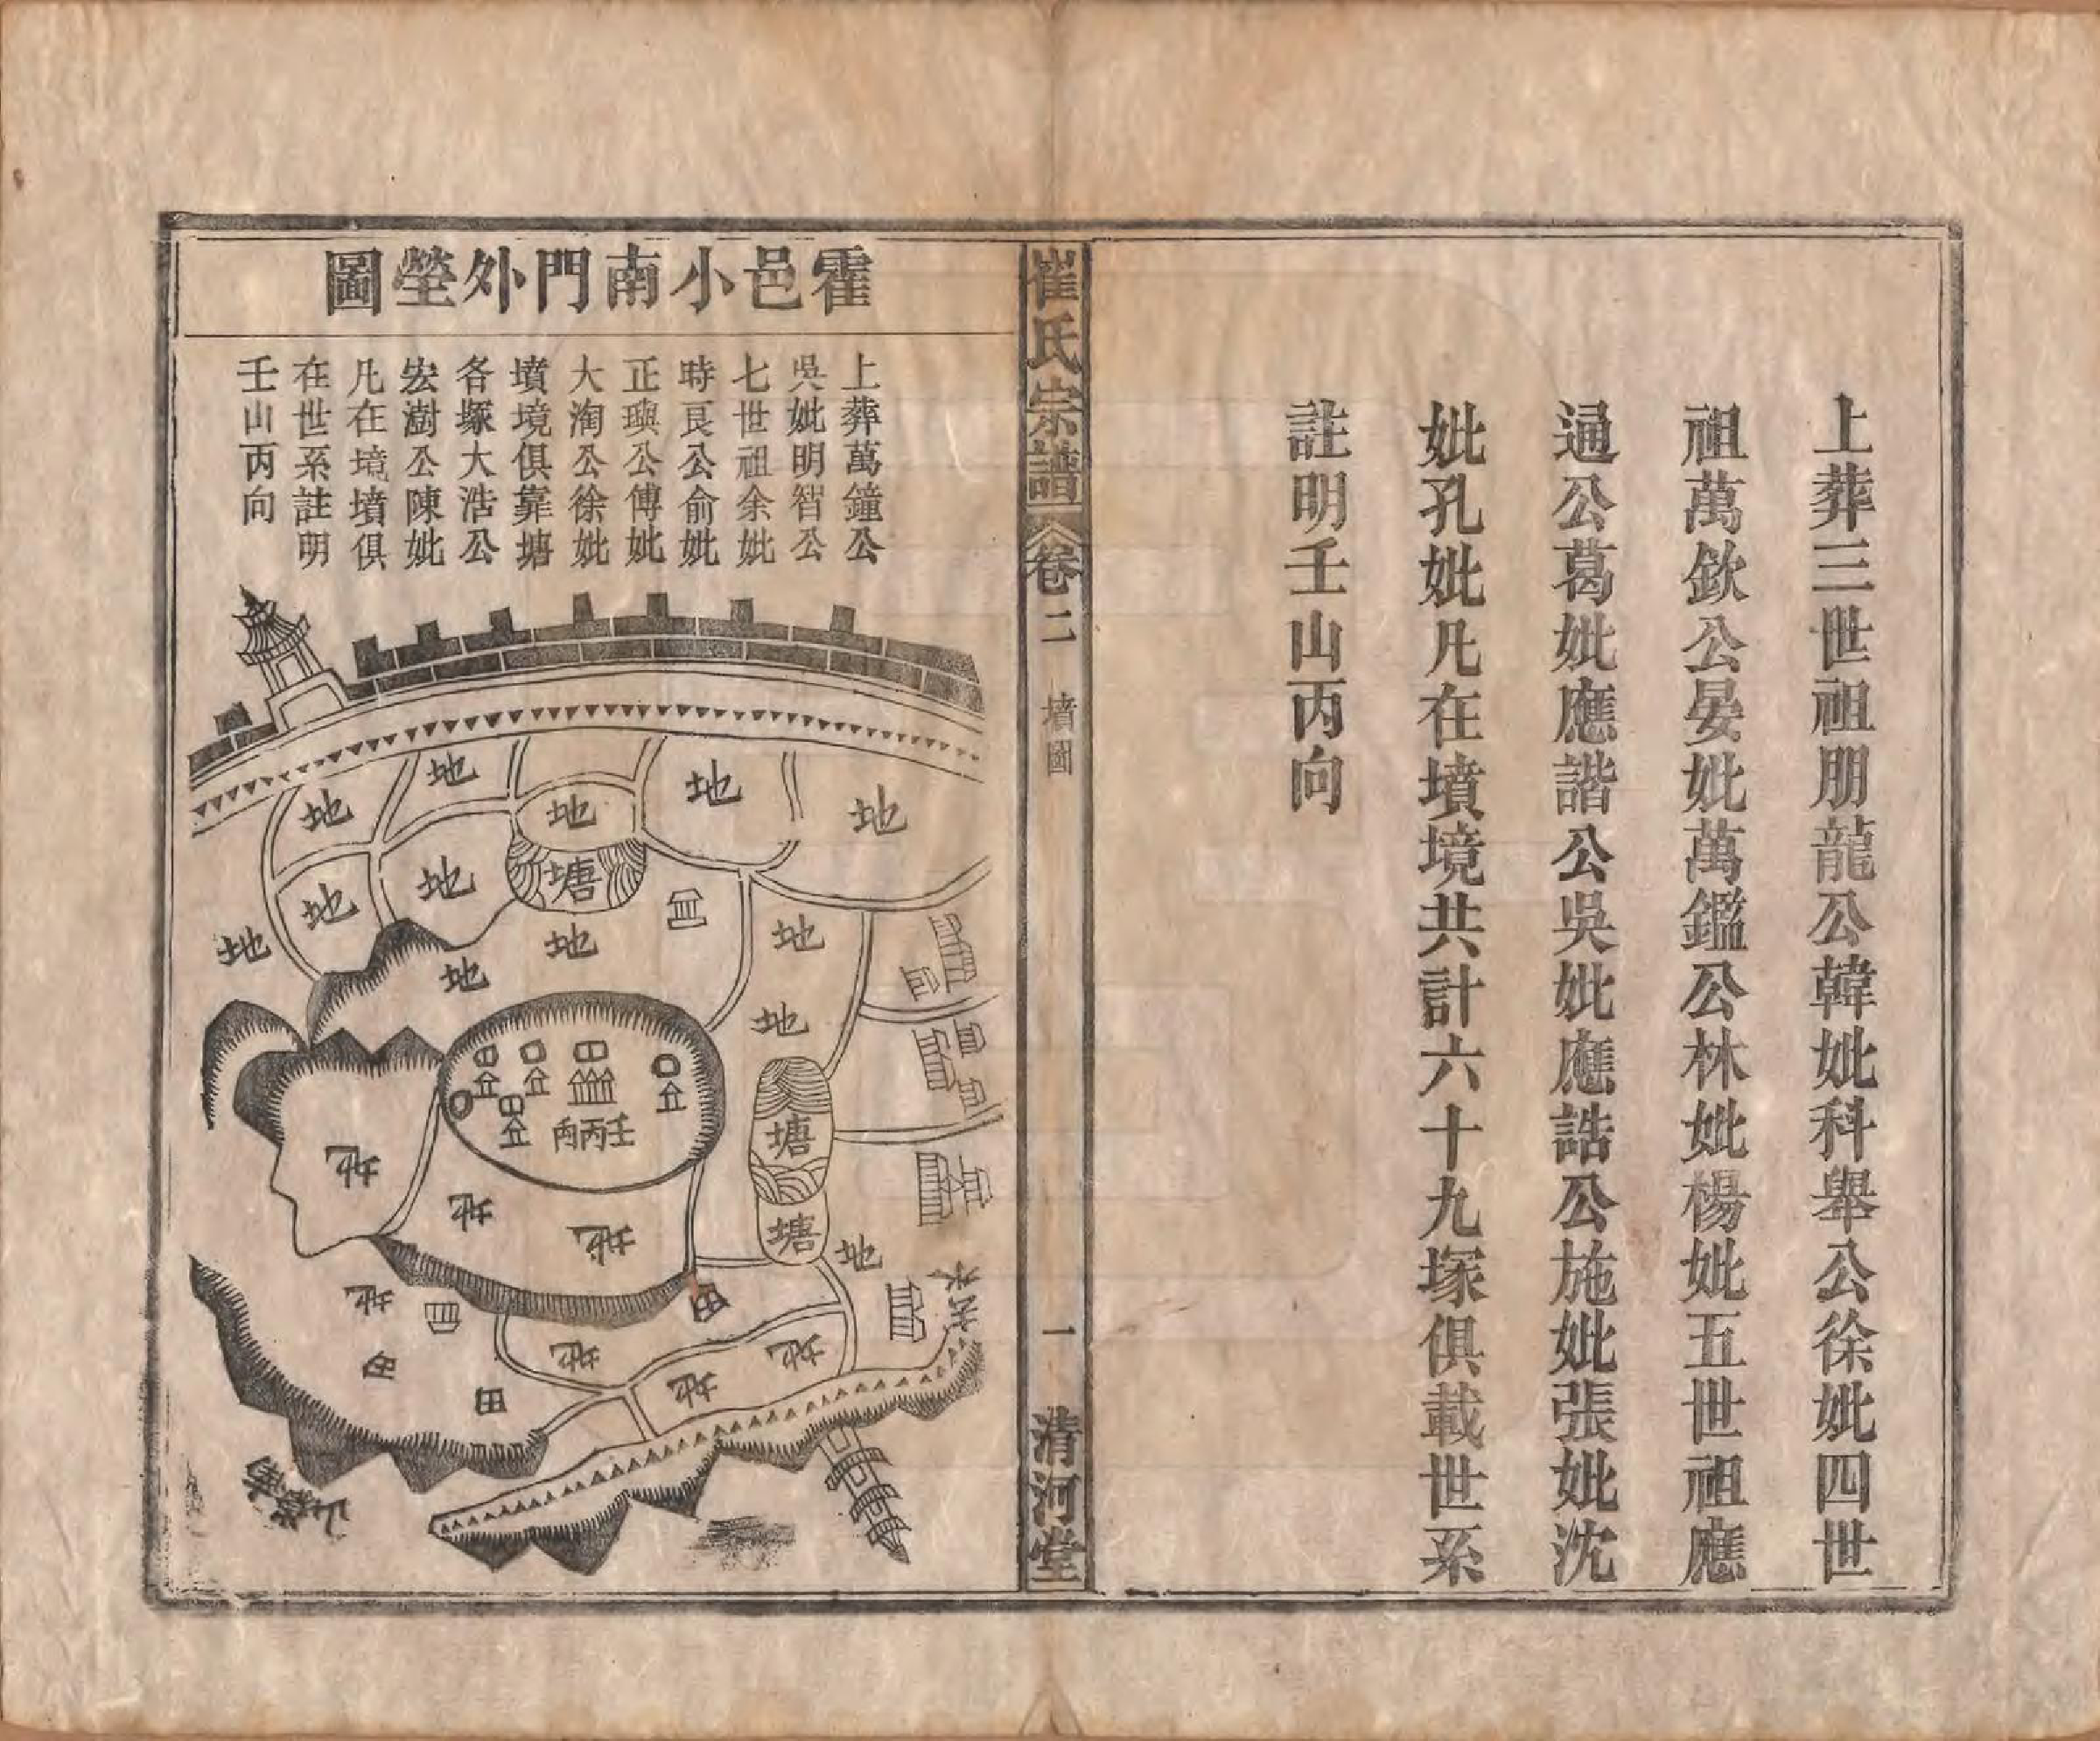 上葬三世祖朋龍公韓妣科舉公徐妣四世
祖萬欽公晏妣萬鑑公林妣楊妣五世祖應
通公葛妣應諧公吳妣應誥公施妣張妣沈
妣孔妣凡在墳境共計六十九塚俱載世系
註明壬山丙向
崔氏宗譜 卷二 墳圖 一 清河堂
霍邑小南門外塋圖
上葬萬鐘公
吳妣明智公
七世祖余妣
時良公俞妣
正璵公傅妣
大淘公徐妣
墳境俱靠塘
各塚大浩公
宏澍公陳妣
凡在境墳俱
在世系註明
壬山丙向
地
地
地
地
地
地
地
地
塘
地
地
地
地
地
壬丙向
塘
塘
地
地
地
地
地
田
地
地
地
田
田
去水